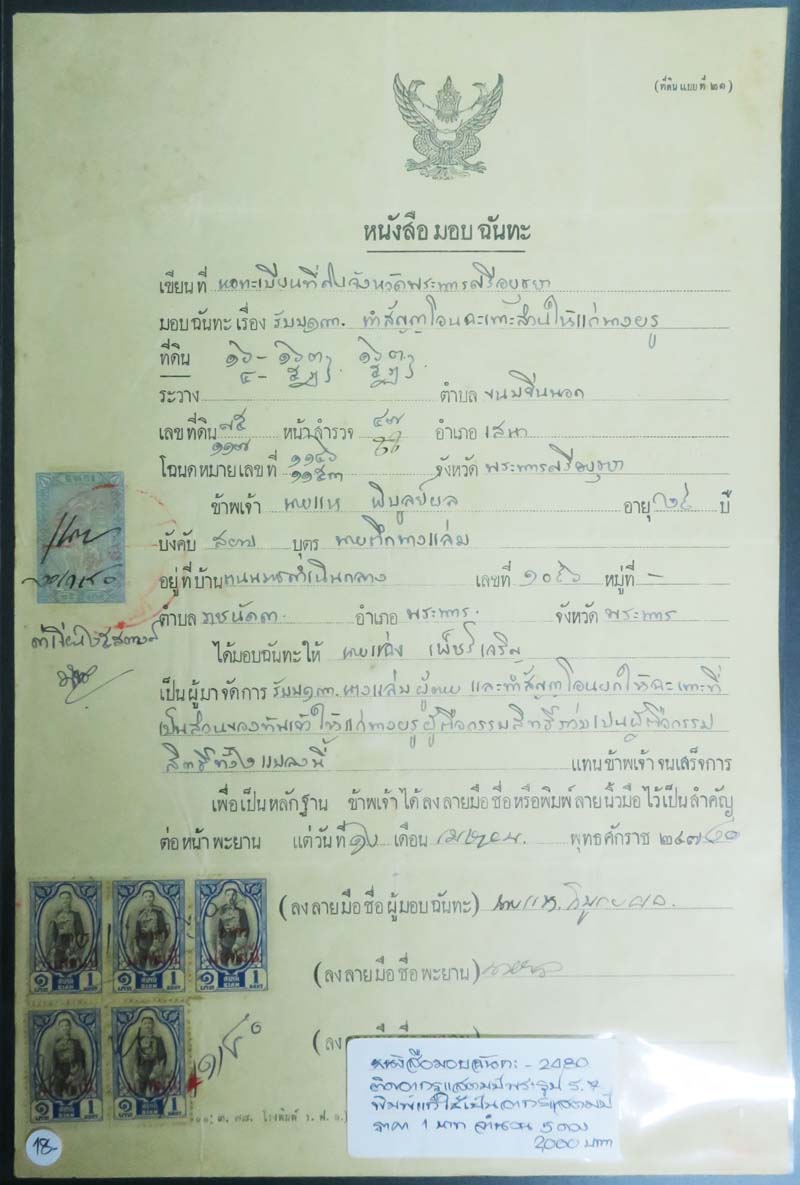 (ที่ดินแบบที่ ๒๑)
หนังสือมอบฉันทะ
เขียนที่ หอทะเบียนที่ดินจังหวัดพระนครศรีอยุธยา
มอบฉันทะเรื่อง รับมฤดก. ทำสัญญาโอนฉะเพาะส่วนให้แก่นาง
ที่ดิน
ระวาง ตำบล ขนมจีนนอก
เลขที่ดิน หน้าสำรวจ ๔๗ อำเภอ เสนา
๑๑๗
โฉนดหมายเลขที่ ๑๑๔๖ จังหวัด พระนครศรีอยุธยา
๑๑๕๓
ข้าพเจ้า นายแห พิบูลย์ผล อายุ ๒๔ ปี
บังคับ สยาม บุตร นางแล่ม
อยู่ที่บ้าน ถนนราชดำเนินกลาง เลขที่ หมู่ที่ -
ตำบล อำเภอ พระนคร. จังหวัด พระนคร
ได้มอบฉันทะให้ เพ็ชร์เจริญ
เป็นผู้มาจัดการ รับมฤดก. นางแล่ม ผู้ตาย และทำสัญญาโอนยกให้ฉะเพาะที่
เป็นส่วนของข้าพเจ้า ให้แก่นาง ผู้ถือกรรมสิทธิ์ร่วมเป็นผู้ถือกรรม
สิทธิ์ทั้ง ๒ แปลงนี้ แทนข้าพเจ้าจนเสร็จการ
เพื่อเป็นหลักฐาน ข้าพเจ้าได้ลงลายมือชื่อหรือพิมพ์ลายนิ้วมือไว้เป็นสำคัญ
ต่อหน้าพะยาน แต่วันที่ เดือน เมษายน. พุทธศักราช
(ลงลายมือชื่อผู้มอบฉันทะ) นายแห. พิบูลย์ผล.
(ลงลายมือชื่อพะยาน)
๑ บาท สยาม SIAM 1 BAHT
๑ บาท สยาม SIAM 1 BAHT
๑ บาท สยาม SIAM 1 BAHT
๑ บาท สยาม SIAM 1 BAHT
๑ บาท สยาม SIAM 1 BAHT
หนังสือมอบฉันทะ - 2480
ติดอากรแสตมป์พระรูป ร.๗
พิมพ์แก้ใช้เป็นอากรแสตมป์
ราคา 1 บาท จำนวน 5 ดวง
2000 บาท
18-